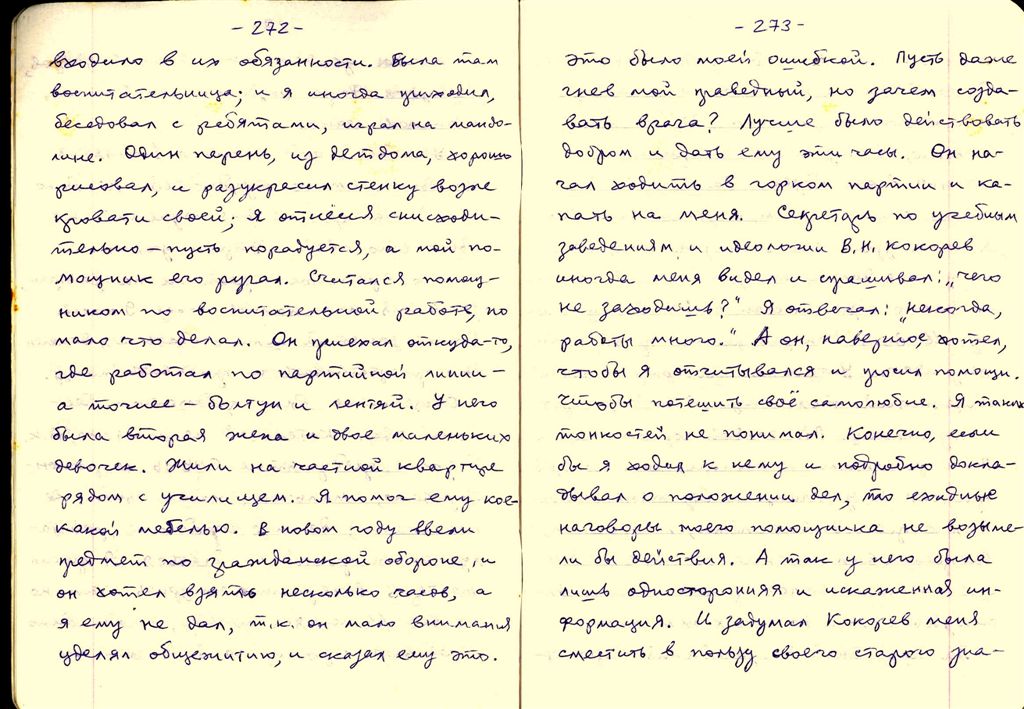 - 272 -
входило в их обязанности. Была там
воспитательница; и я иногда приходил,
беседовал с ребятами, играл на мандо-
лине. Один парень, из детдома, хорошо
рисовал, и разукрасил стенку возле
кровати своей; я отнёсся снисходи-
тельно – пусть порадуется, а мой по-
мощник его ругал. Считался помощ-
ником по воспитательной работе, но
мало что делал. Он приехал откуда-то,
где работал по партийной линии –
а точнее – болтун и лентяй. У него
была вторая жена и двое маленьких
девочек. Жили на частной квартире
рядом с училищем. Я помог ему кое-
какой мебелью. В новом году ввели
предмет по гражданской обороне, и
он хотел взять несколько часов, а
я ему не дал, т.к. он мало внимания
уделял общежитию, и сказал ему это.
- 273 -
это было моей ошибкой. Пусть даже
гнев мой праведный, но зачем созда-
вать врага? Лучше было действовать
добром и дать ему эти часы. Он на-
чал ходить в горком партии и ка-
пать на меня. Секретарь по учебным
заведениям и идеологии В.Н. Кокорев
иногда меня видел и спрашивал: „чего
не заходишь?" Я отвечал: „некогда,
работы много." А он, наверное, хотел,
чтобы я отчитывался и просил помощи.
Чтобы потешить своё самолюбие. Я таких
тонкостей не понимал. Конечно, если
бы я ходил к нему и подробно докла-
дывал о положении дел, то ехидные
наговоры моего помощника не возыме-
ли бы действия. А так у него была
лишь односторонняя и искаженная ин-
формация. И задумал Кокорев меня
сместить в пользу своего старого зна-